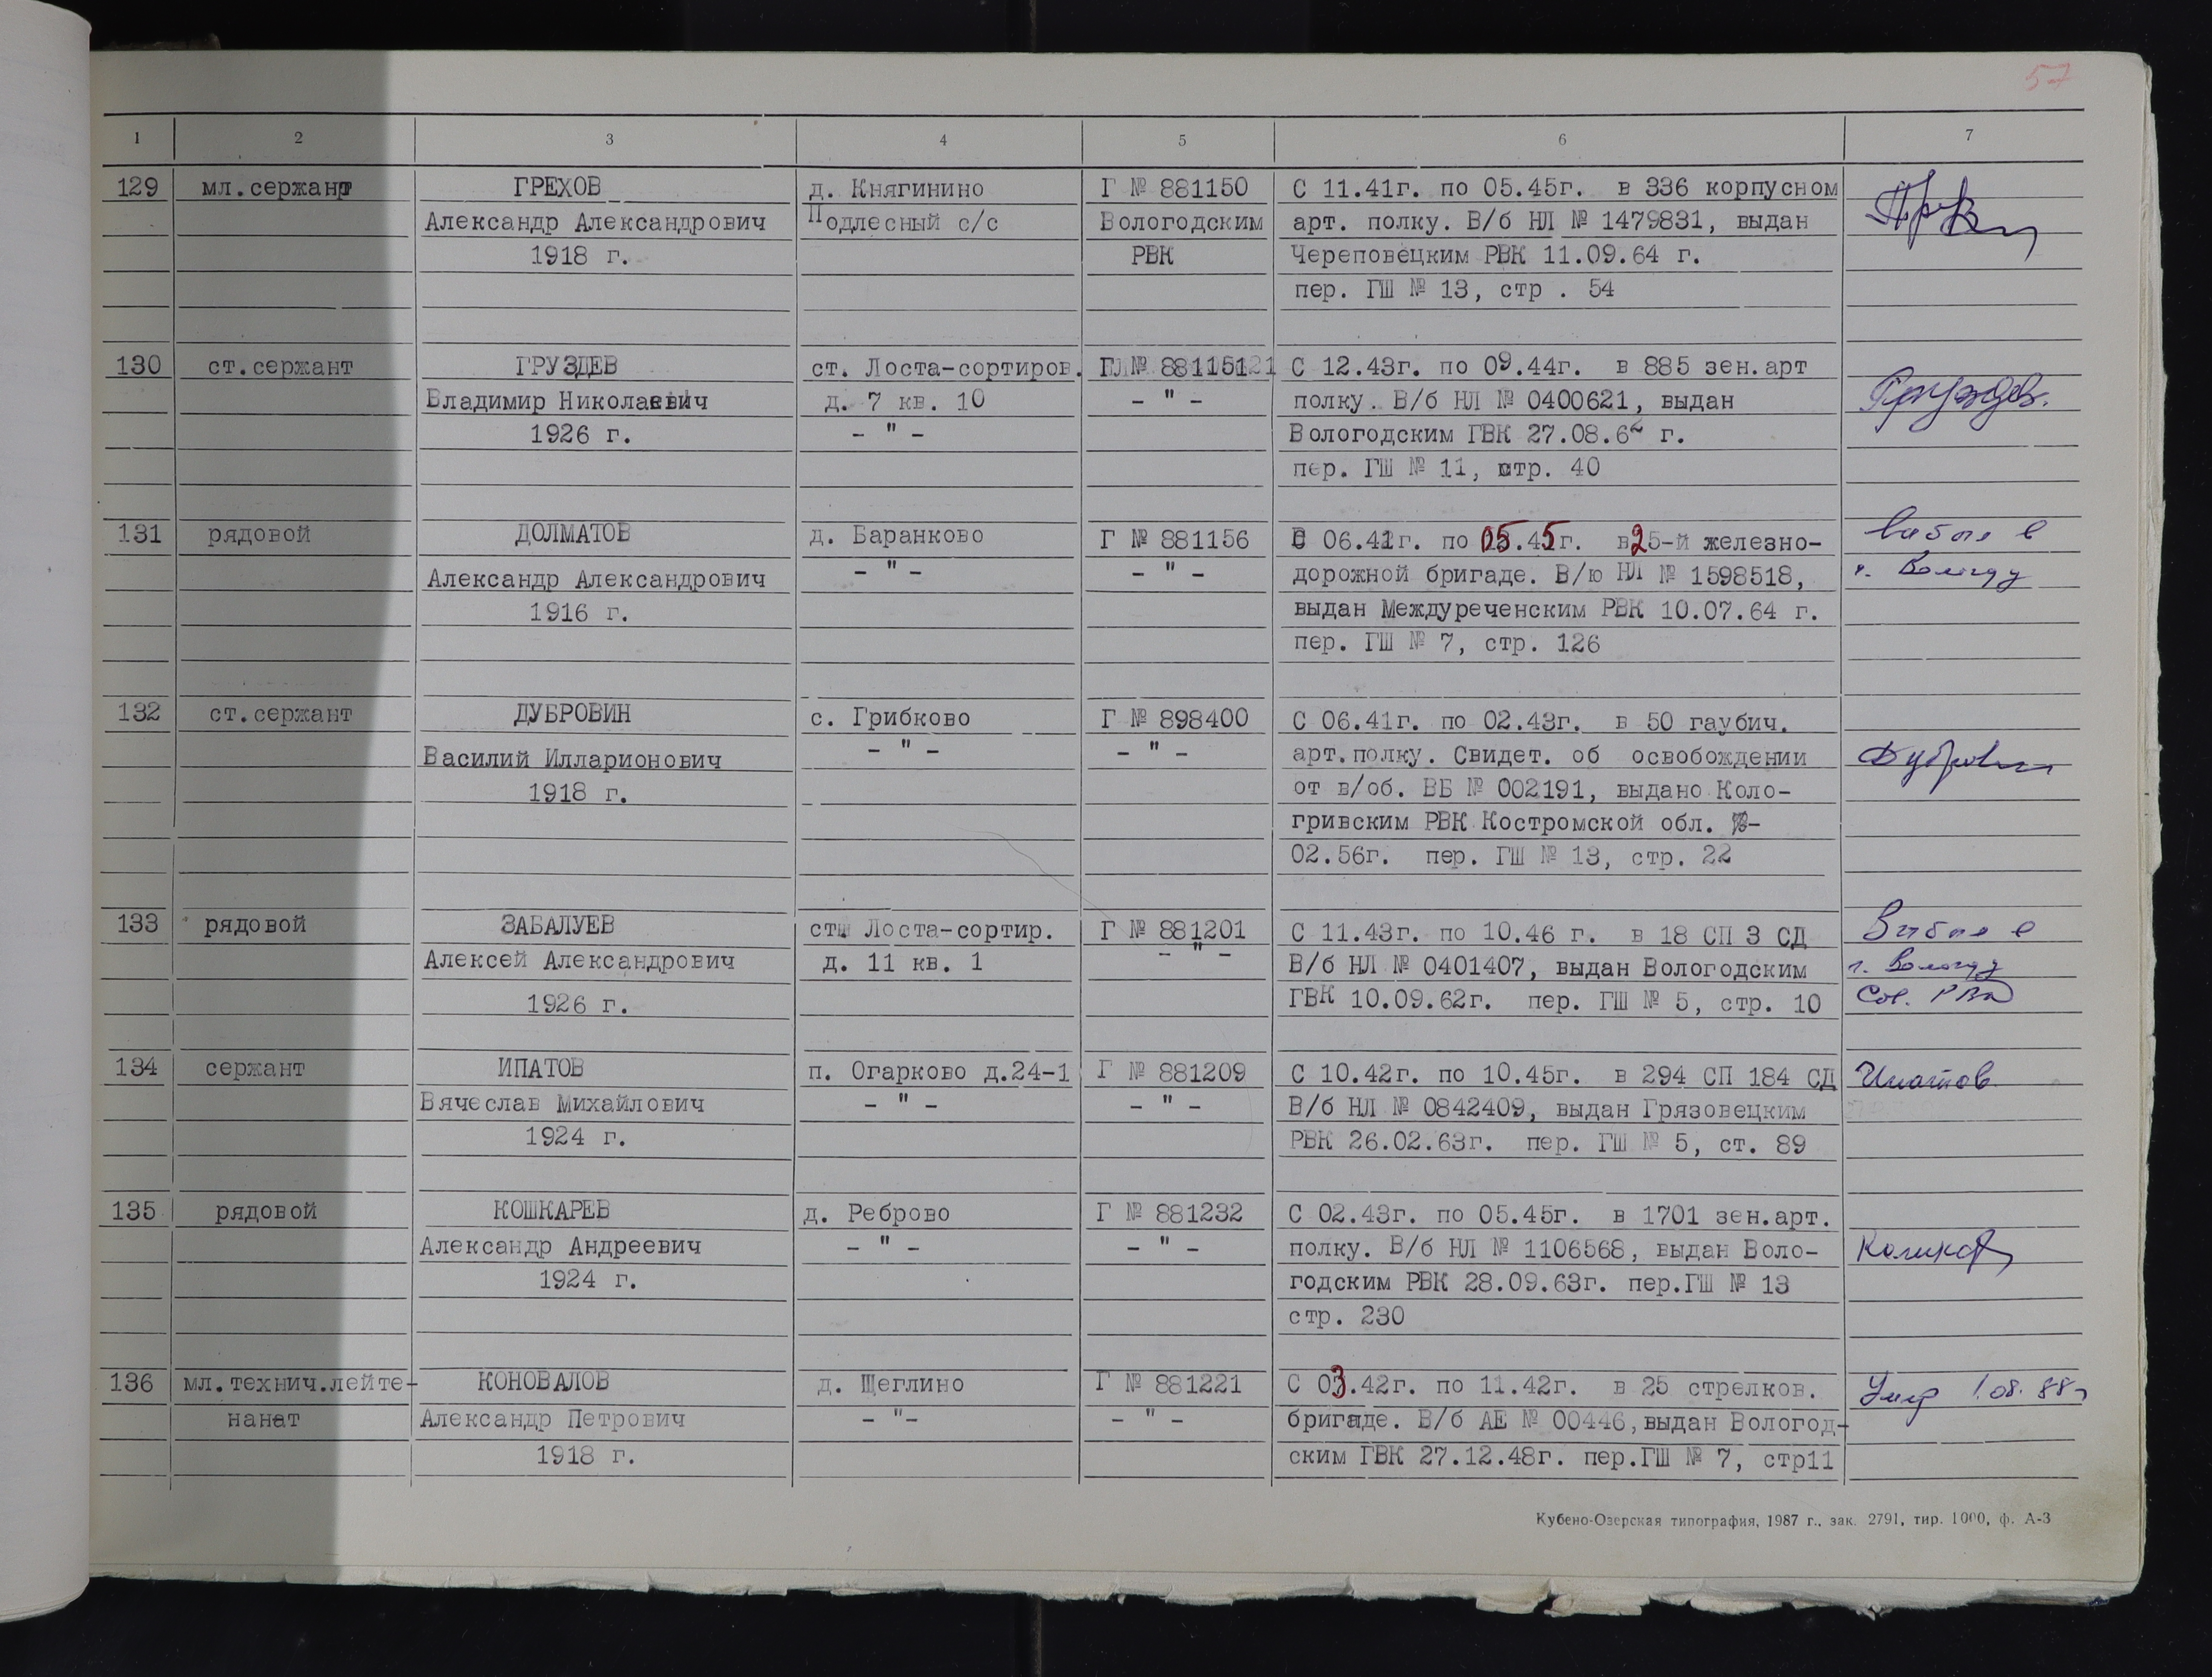 57
1 2 3 4 5 6 7
129 мл.сержант ГРЕХОВ д. Княгинино Г № 881150 С 11.41г. по 05.45г. в 336 корпусном
Александр Александрович Подлесный с/с Вологодским арт. полку. В/б НЛ № 1479831, выдан
1918 г. РВК Череповецким РВК 11.09.64 г.
пер. ГШ № 13, стр . 54
130 ст.сержант ГРУЗДЕВ ст. Лоста-сортиров. С 12.43г. по 09.44г. в 885 зен.арт
Владимир Николаевич д. 7 кв. 10 - " - полку. В/б НЛ № 0400621, выдан Груздев.
1926 г. - " - Вологодским ГВК 27.08.62 г.
пер. ГШ № 11, стр. 40
131 рядовой ДОЛМАТОВ д. Баранково Г № 881156 С 06.41г. по 05.45г. в 25-й железно- выбыл в
Александр Александрович - " - - " - дорожной бригаде. В/ю НЛ № 1598518, г. Вологду
1916 г. выдан Междуреченским РВК 10.07.64 г.
пер. ГШ № 7, стр. 126
132 ст.сержант ДУБРОВИН с. Грибково Г № 898400 С 06.41г. по 02.43г. в 50 гаубич.
Василий Илларионович - " - - " - арт.полку. Свидет. об освобождении Дубровин
1918 г. от в/об. ВБ № 002191, выдано Коло-
гривским РВК Костромской обл. -
02.56г. пер. ГШ № 13, стр. 22
133 рядовой ЗАБАЛУЕВ ст. Лоста-сортир. Г № 881201 С 11.43г. по 10.46 г. в 18 СП 3 СД Выбыл в
Алексей Александрович д. 11 кв. 1 - " - В/б НЛ № 0401407, выдан Вологодским г. Вологду
1926 г. ГВК 10.09.62г. пер. ГШ № 5, стр. 10 Сов. РВК
134 сержант ИПАТОВ п. Огарково д.24-1 Г № 881209 С 10.42г. по 10.45г. в 294 СП 184 СД Ипатов
Вячеслав Михайлович - " - - " - В/б НЛ № 0842409, выдан Грязовецким
1924 г. РВК 26.02.63г. пер. ГШ № 5, ст. 89
135 рядовой КОШКАРЕВ д. Реброво Г № 881232 С 02.43г. по 05.45г. в 1701 зен.арт.
Александр Андреевич - " - - " - полку. В/б НЛ № 1106568, выдан Воло-
1924 г. годским РВК 28.09.63г. пер.ГШ № 13
стр. 230
136 мл.технич.лейте- КОНОВАЛОВ д. Щеглино Г № 881221 С 03.42г. по 11.42г. в 25 стрелков. Умер 1.08.88г
нант Александр Петрович - "- - " - бригаде. В/б АЕ № 00446,выдан Вологод-
1918 г. ским ГВК 27.12.48г. пер.ГШ № 7, стр11
Кубено-Озерская типография, 1987 г., зак. 2791, тир. 1000, ф. А-3